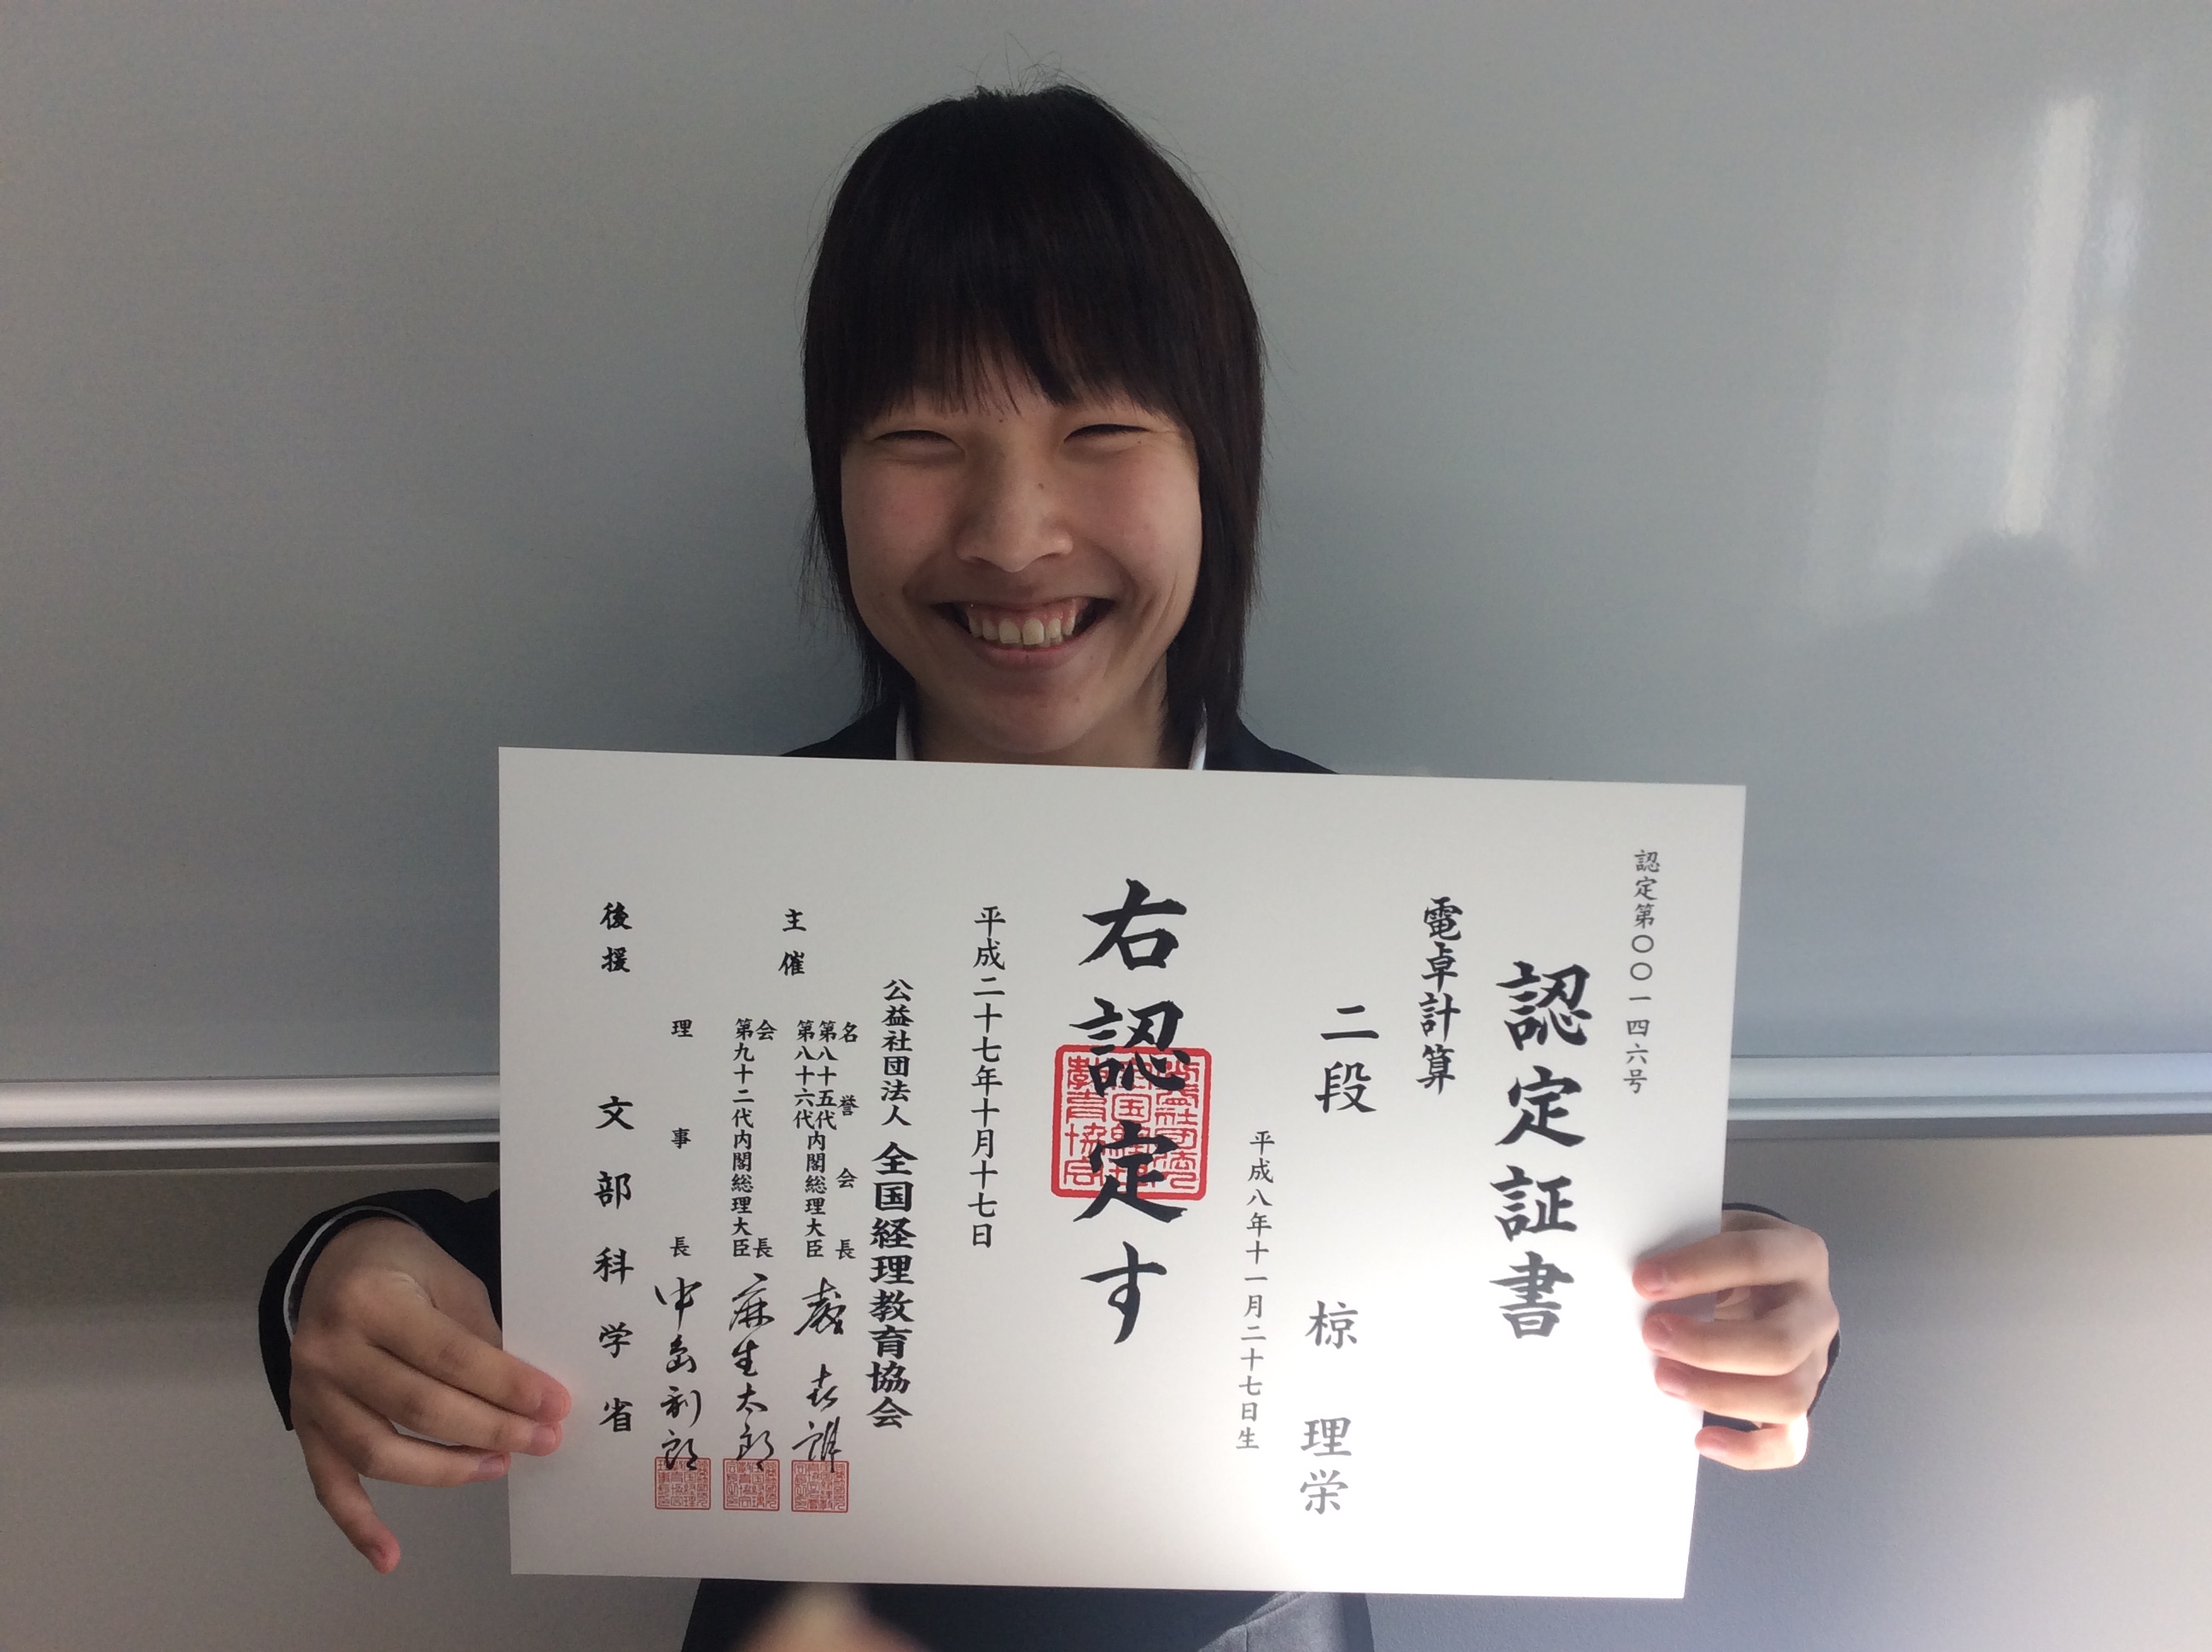 認定第〇〇一四六号
認定証書
電卓計算
二段
椋 理栄
平成八年十一月二十七日生
右認定す
平成二十七年十月十七日
公益社団法人 全国経理教育協会
主催
名誉会長
第八十五代
第八十六代
内閣総理大臣
森 喜朗
会長
第九十二代内閣総理大臣
麻生太郎
理事長
中島利郎
後援
文部科学省